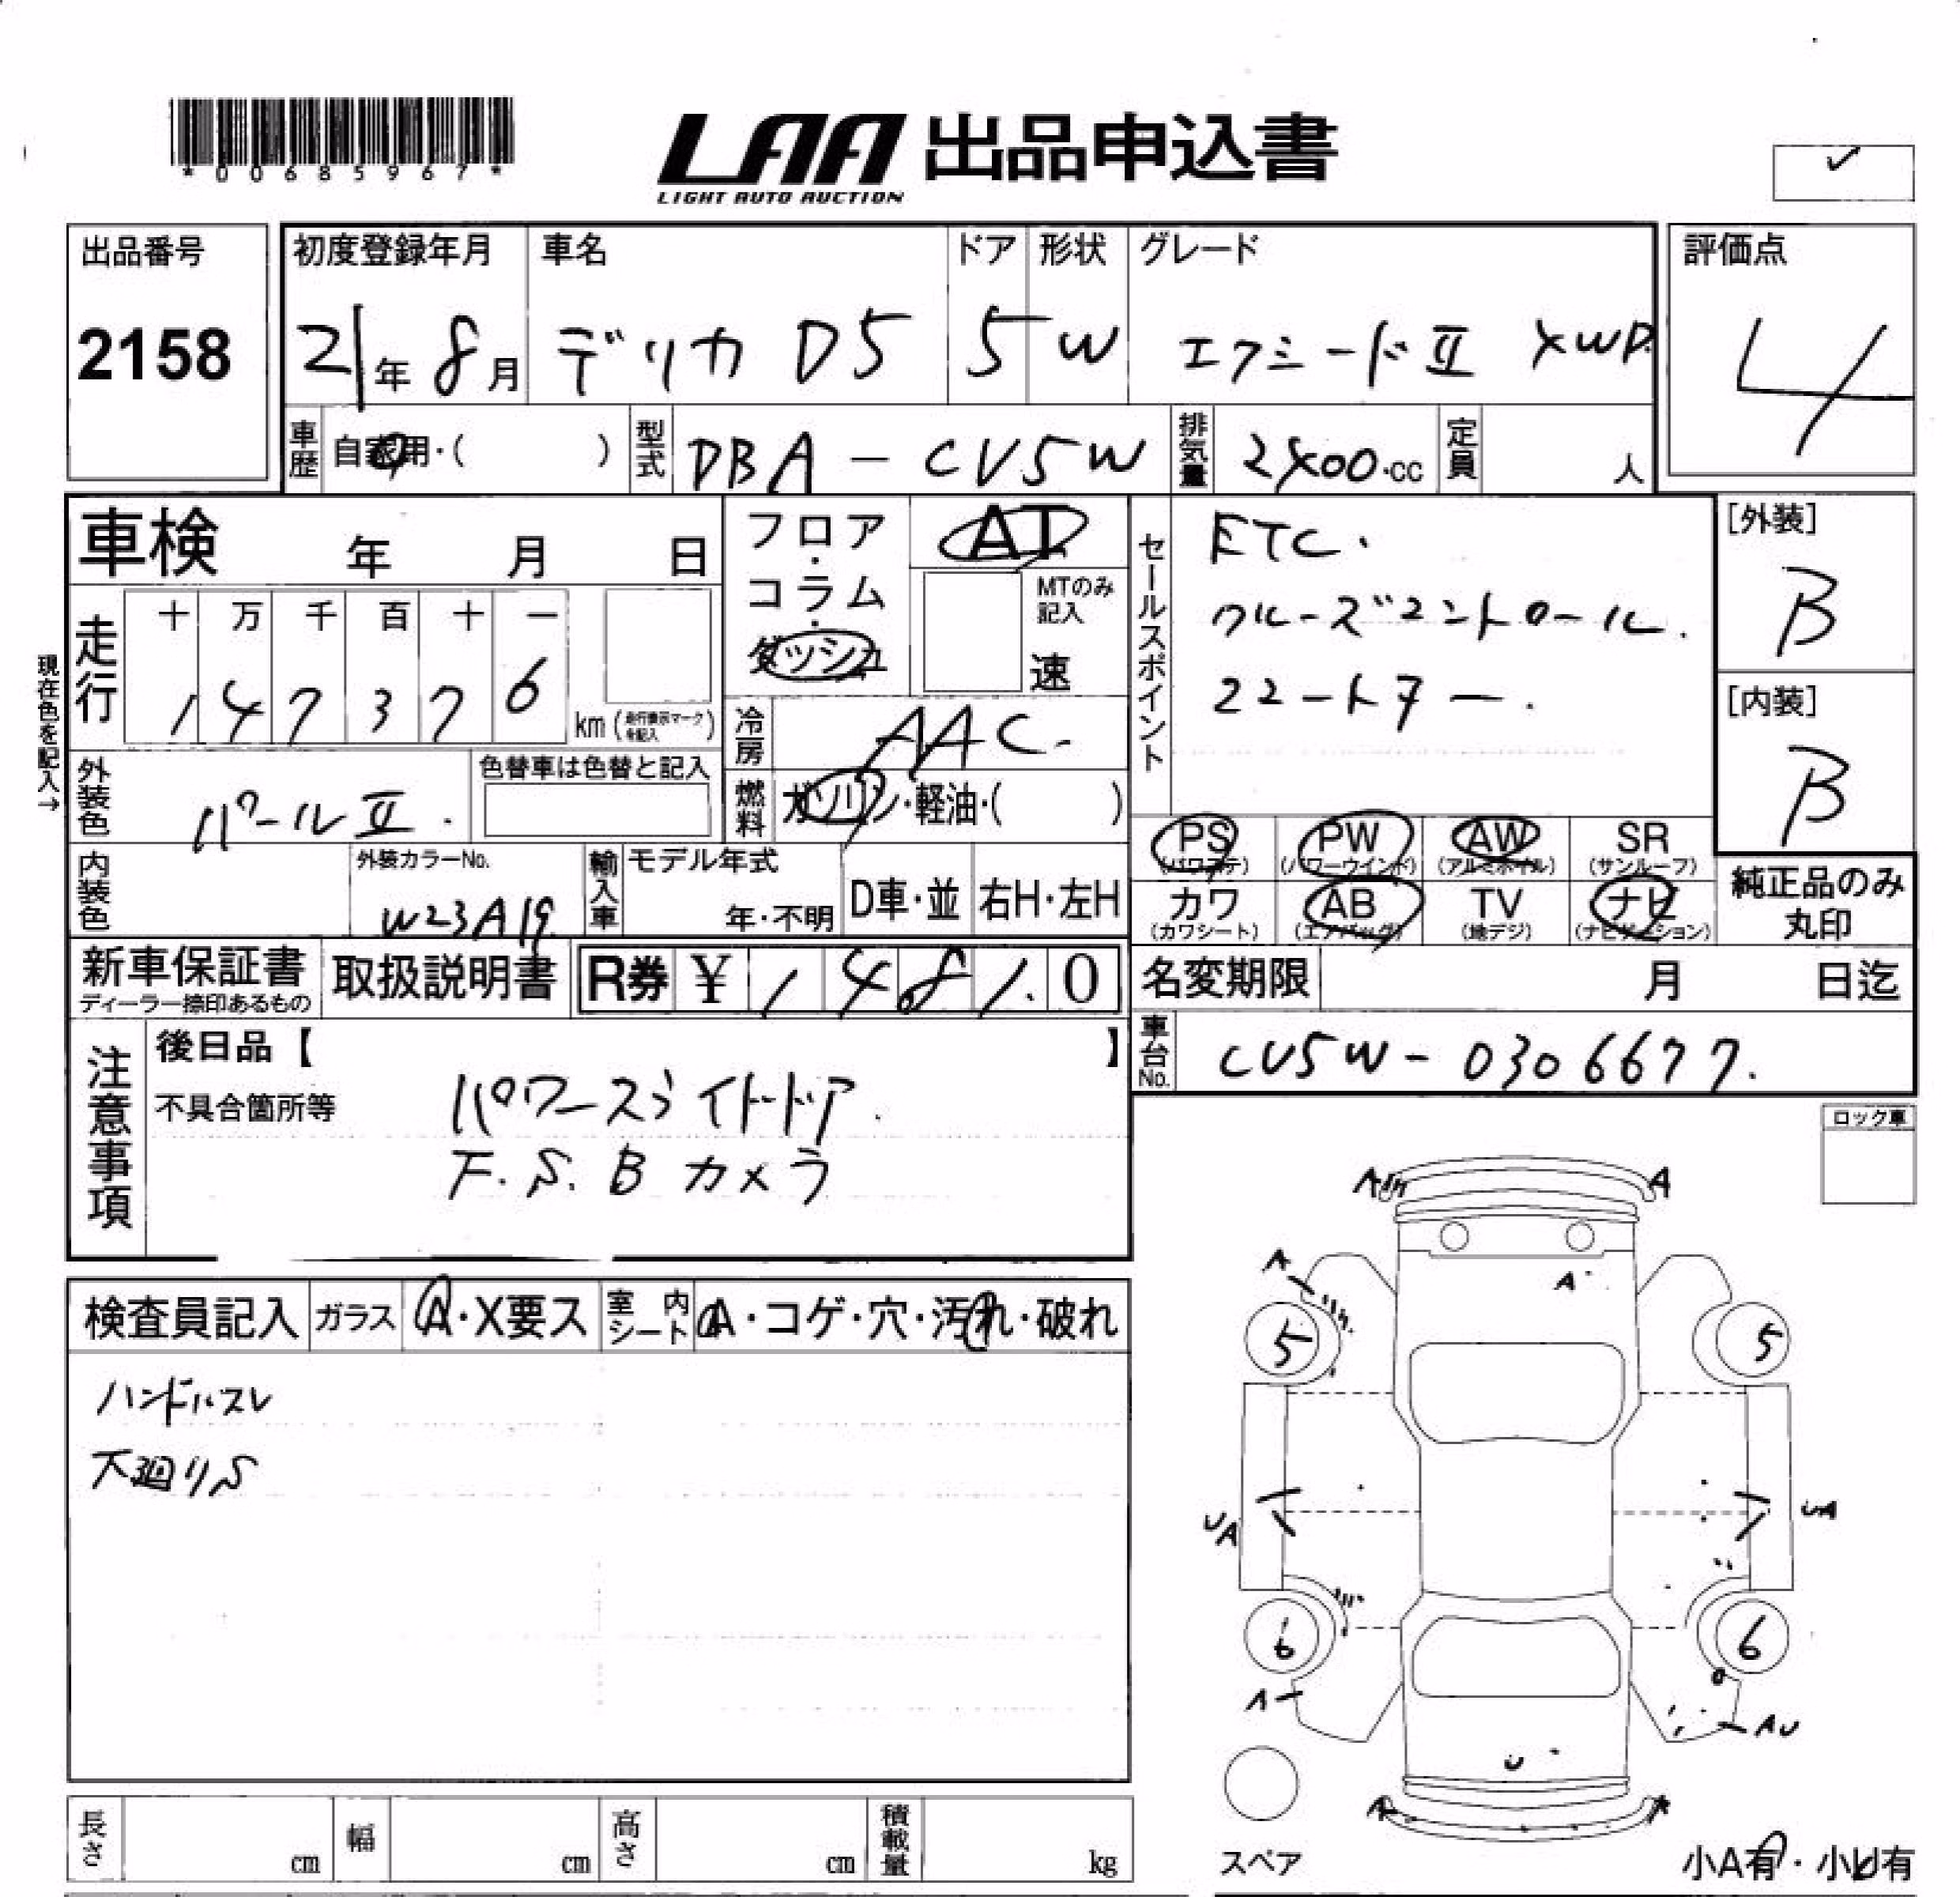 *00685967*
LAA 出品申込書
LIGHT AUTO AUCTION
✓
出品番号
2158
初度登録年月
21年 8月
車名
デリカ D5
ドア
5
形状
W
グレード
エクシードⅡ 4WD.
評価点
4
車歴
自家用・( )
型式
DBA-CV5W
排気量
2400.cc
定員
人
車検 年 月 日
フロア・コラム・ダッシュ
AT
MTのみ記入
速
セールスポイント
ETC.
クルーズコントロール.
22ートター.
[外装]
B
[内装]
B
現在色を記入→
走行
十 万 千 百 十 一
1 4 7 3 7 6
km (走行表示マークを記入)
冷房
AAC.
外装色
パールⅡ.
色替車は色替と記入
燃料
ガソリン・軽油・( )
PS (パワステ)
PW (パワーウインド)
AW (アルミホイル)
SR (サンルーフ)
カワ (カワシート)
AB (エアバッグ)
TV (地デジ)
ナビ (ナビゲーション)
純正品のみ丸印
内装色
外装カラーNo.
W23A19
輸入車
モデル年式
年・不明
D車・並
右H・左H
新車保証書
ディーラー捺印あるもの
取扱説明書
R券 ¥ 1 4.8 1.0
名変期限 月 日迄
車台No.
CV5W-0306677.
注意事項
後日品【 】
不具合箇所等
パワースライドドア.
F.S.Bカメラ
ロック車
検査員記入
ガラス
A・X要ス
室内シート
A・コゲ・穴・汚れ・破れ
ハンドルスレ
下廻りS
A
A
A
A
5
5
UA
UA
6
6
A
AU
U
A
A
スペア
小A有・小U有
長さ cm
幅 cm
高さ cm
積載量 kg